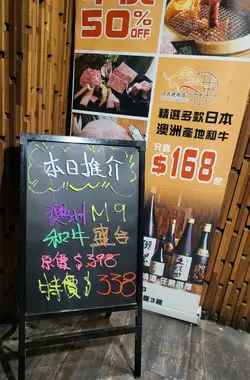 50%
OFF
精選多款日本
澳洲產地和牛
只售
$168起
本日推介
澳洲M9
和牛盛合
原價$398
特價$338